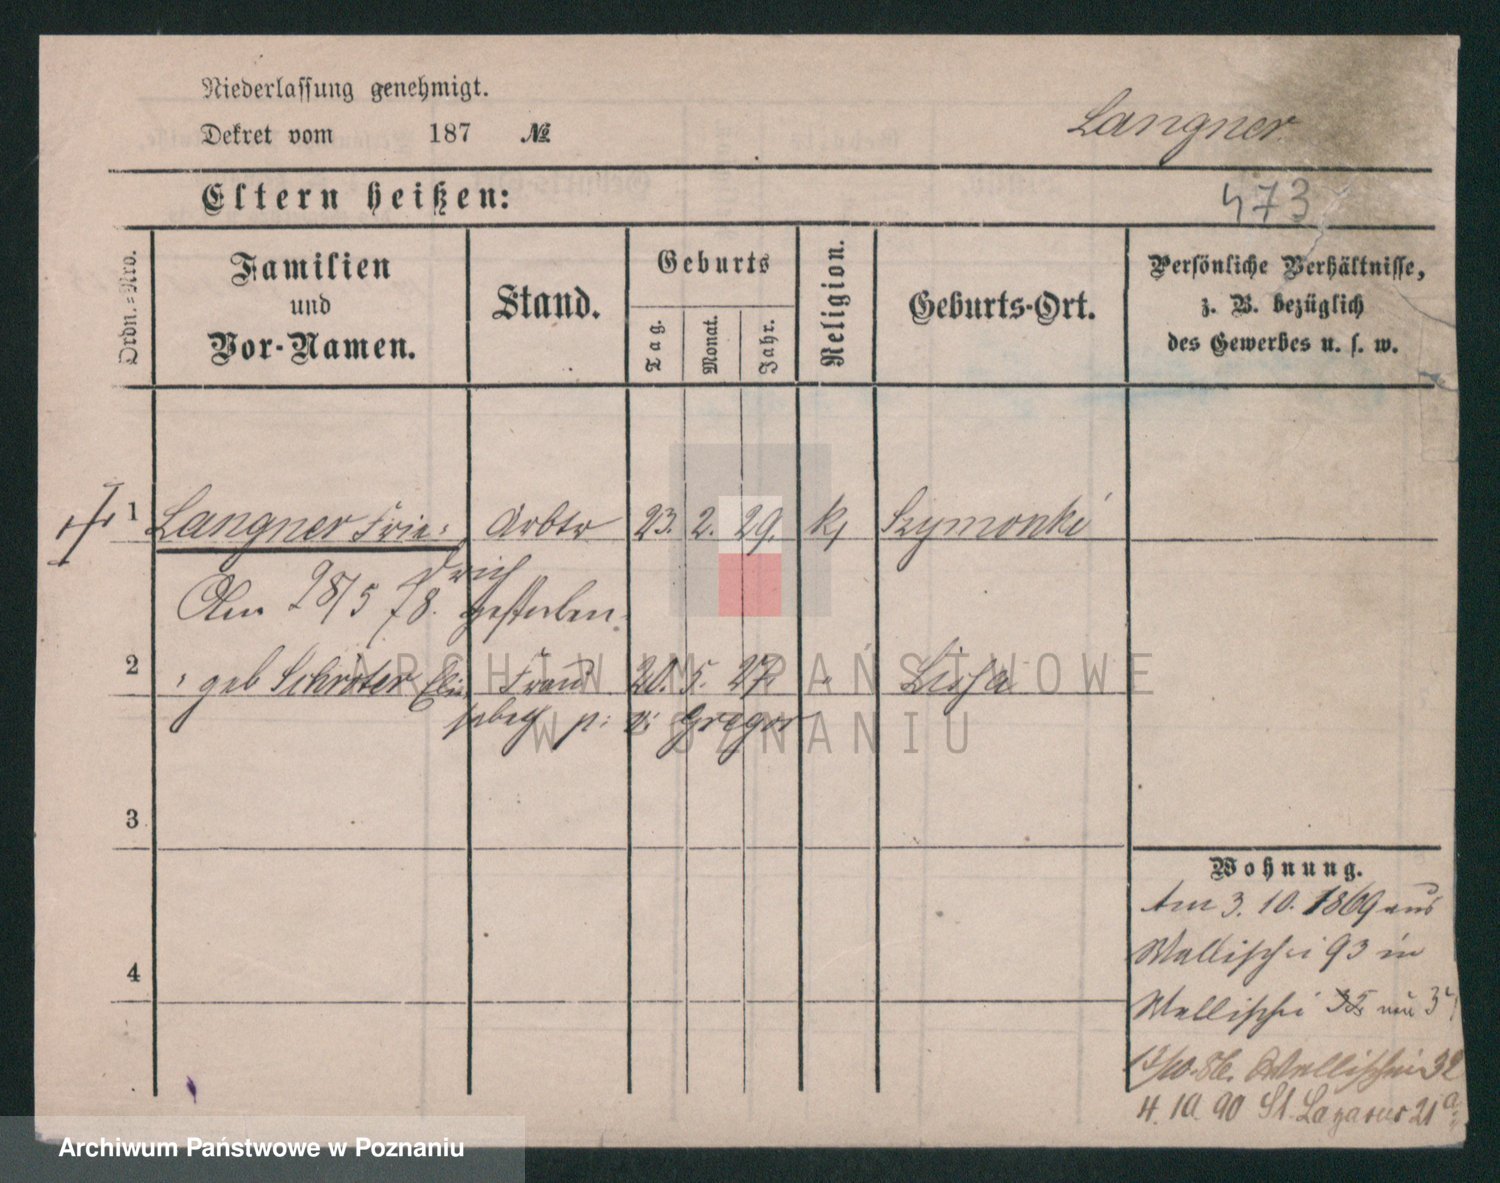 Niederlassung genehmigt.
Dekret vom 187 №
Langner
Eltern heißen:
473
Ordn.=Nro.
Familien
und
Vor-Namen.
Stand.
Geburts
Tag.
Monat.
Jahr.
Religion.
Geburts-Ort.
Persönliche Verhältnisse,
z. B. bezüglich
des Gewerbes u. s. w.
1 Langner Frie: Arbtr 23. 2. 29. k Szymonki
drich
Am 28/5 78. gestorben.
2 geb Schröter Eli Frau 20. 5. 27. " Lissa
sabeth p: v: Gregor
ARCHIWUM PAŃSTWOWE
W POZNANIU
3
4
Wohnung.
Am 3. 10. 1869 aus
Wallischei 93 in
Wallischei 35 neu 34
12/10. 86. Wallischei 32
4. 10. 90 St. Lazarus 21a
Archiwum Państwowe w Poznaniu